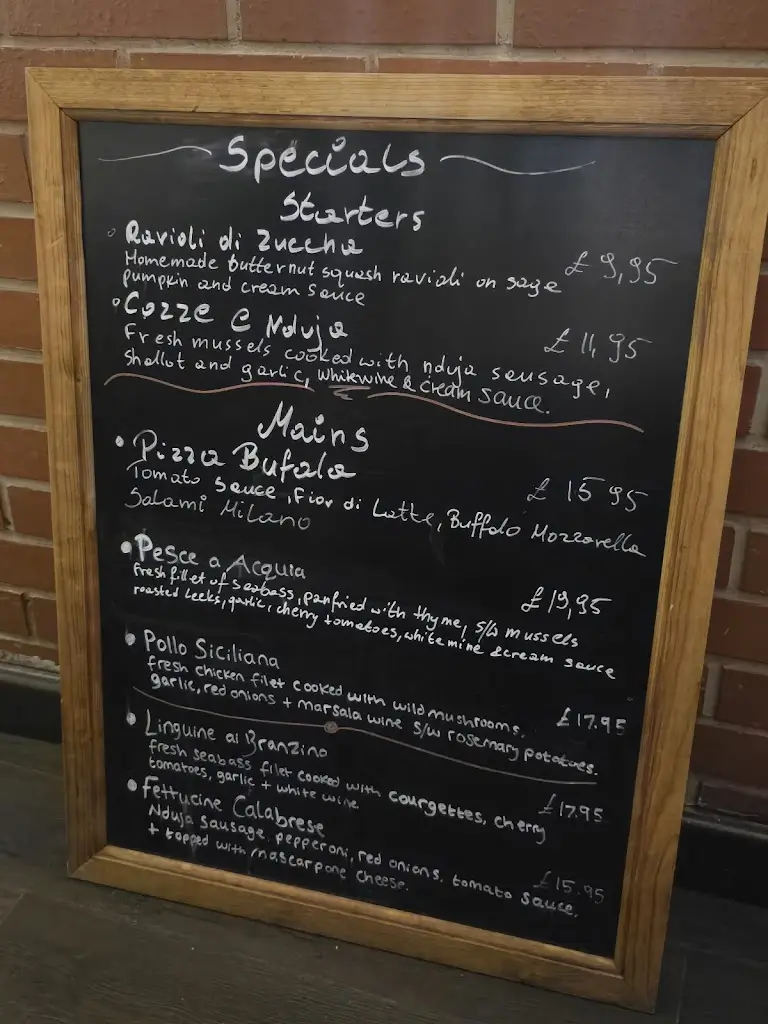 Specials
Starters
Ravioli di Zuccha £ 9,95
Homemade butternut squash ravioli on sage
pumpkin and cream sauce
Cozze e Nduja £ 11,95
Fresh mussels cooked with nduja sausage,
Shallot and garlic, white wine & cream sauce.
Mains
Pizza Bufala £ 15 95
Tomato sauce, Fior di Latte, Buffalo Mozzarella
Salami Milano
Pesce a Acquia £19,95
fresh fillet of seabass, panfried with thyme, s/w mussels
roasted leeks, garlic, cherry tomatoes, white wine & cream sauce
Pollo Siciliana £17.95
fresh chicken filet cooked with wild mushrooms,
garlic, red onions + marsala wine s/w rosemary potatoes.
Linguine al Branzino £17.95
fresh seabass filet cooked with courgettes, cherry
tomatoes, garlic + white wine
Fettucine Calabrese £15.95
Nduja sausage, pepperoni, red onions, tomato sauce,
+ topped with mascarpone cheese.